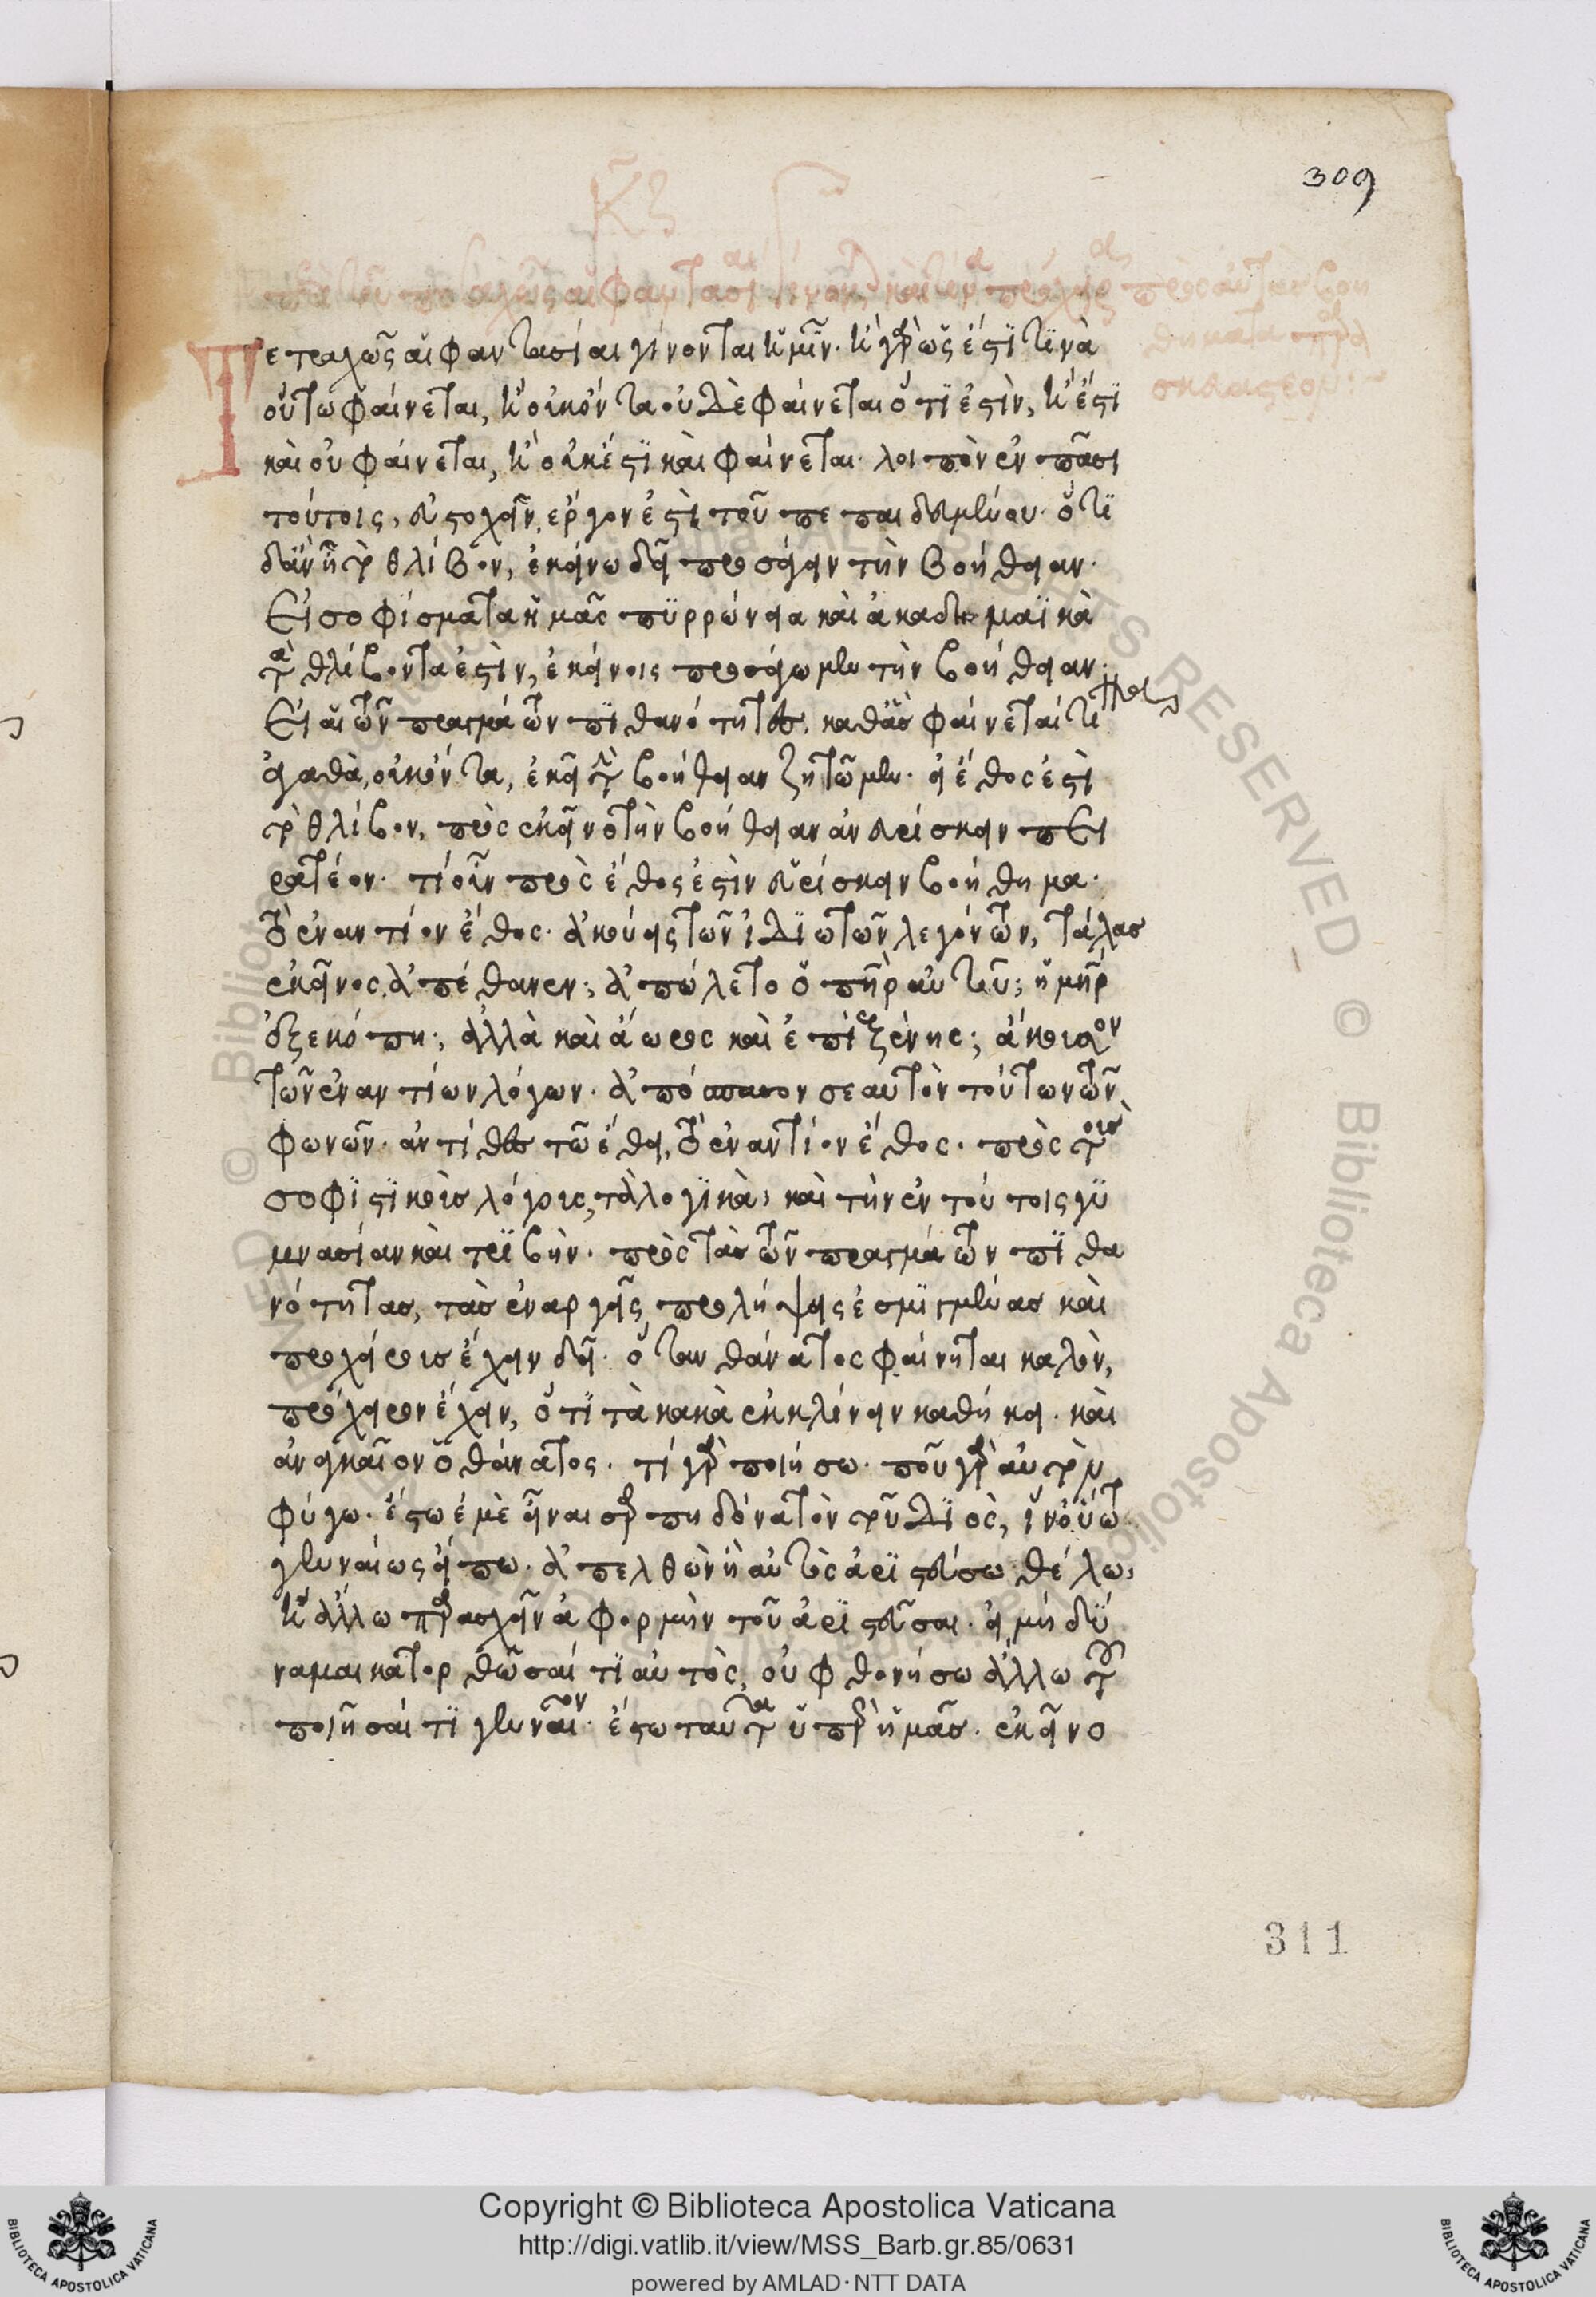 309
κζ
ποσαχῶς αἱ φαντασίαι γίνονται καὶ τίνα πρόχειρα πρὸς αὐτὰς βοη
θήματα παρα
σκευαστέον:~
Τετραχῶς αἱ φαντασίαι γίνονται ἡμῖν. ἢ γὰρ ὡς ἔστι τινὰ
οὕτω φαίνεται, ἢ οὐκ ὄντα οὐδὲ φαίνεται ὅτι ἐστὶν, ἢ ἔστι
καὶ οὐ φαίνεται, ἢ οὐκ ἔστι καὶ φαίνεται. λοιπὸν ἐν πᾶσι
τούτοις, εὐστοχεῖν, ἔργον ἐστὶ τοῦ πεπαιδευμένου. ὅτι
δ' ἂν ᾖ τὸ θλίβον, ἐκείνω δεῖ προσάγειν τὴν βοήθειαν.
Εἰ σοφίσματα ἡμᾶς πυρρώνεια καὶ ἀκαδημαϊκὰ
τὰ θλίβοντα ἐστὶν, ἐκείνοις προσάγωμεν τὴν βοήθειαν.
Εἰ αἱ τῶν πραγμάτων πιθανότητες, καθ' ἃς φαίνεταί τινα
ἀγαθὰ, οὐκ ὄντα, ἐκεῖ τὴν βοήθειαν ζητῶμεν. εἰ ἔθος ἐστὶ
τὸ θλίβον, πρὸς ἐκεῖνο τὴν βοήθειαν ἀνευρίσκειν πει
ρατέον. τί οὖν πρὸς ἔθος ἐστὶν εὑρίσκειν βοήθημα.
τὸ ἐναντίον ἔθος. ἀκούεις τῶν ἰδιωτῶν λεγόντων, τάλας
ἐκεῖνος ἀπέθανεν; ἀπώλετο ὁ πατὴρ αὐτοῦ; ἡ μήτηρ
ἐξεκόπη; ἀλλὰ καὶ ἄωρος καὶ ἐπὶ ξένης; ἄκουσον
τῶν ἐναντίων λόγων. ἀπόσπασον σεαυτὸν τούτων τῶν
φωνῶν. ἀντίθες τῶ ἔθει, τὸ ἐναντίον ἔθος. πρὸς τοὺς
σοφιστικοὺς λόγους, τὰ λογικὰ, καὶ τὴν ἐν τούτοις γυ
μνασίαν καὶ τριβὴν. πρὸς τὰς τῶν πραγμάτων πιθα
νότητας, τὰς ἐναργεῖς προλήψεις ἐσμιγμένας καὶ
προχείρους ἔχειν δεῖ. ὅταν θάνατος φαίνηται κακὸν,
πρόχειρον ἔχειν, ὅτι τὰ κακὰ ἐκκλίνειν καθήκει. καὶ
ἀναγκαῖον ὁ θάνατος. τί γὰρ ποιήσω. ποῦ γὰρ αὐτὸν
φύγω. ἔστω ἐμὲ εἶναι σαρπηδόνα τὸν τοῦ Διὸς, ἵν' οὕτως
γενναίως εἴπω. ἀπελθὼν ἢ αὐτὸς ἀριστεῦσαι θέλω,
ἢ ἄλλω παρασχεῖν ἀφορμὴν τοῦ ἀριστεῦσαι. εἰ μὴ δύ
ναμαι κατορθῶσαί τι αὐτὸς, οὐ φθονήσω ἄλλω τοῦ
ποιῆσαί τι γενναῖον. ἔστω ταῦτα ὑπὲρ ἡμᾶς. ἐκεῖνο
311
© Biblioteca Apostolica Vaticana ALL RIGHTS RESERVED © Biblioteca Apostolica
Copyright © Biblioteca Apostolica Vaticana
http://digi.vatlib.it/view/MSS_Barb.gr.85/0631
powered by AMLAD·NTT DATA
BIBLIOTECA APOSTOLICA VATICANA
BIBLIOTECA APOSTOLICA VATICANA